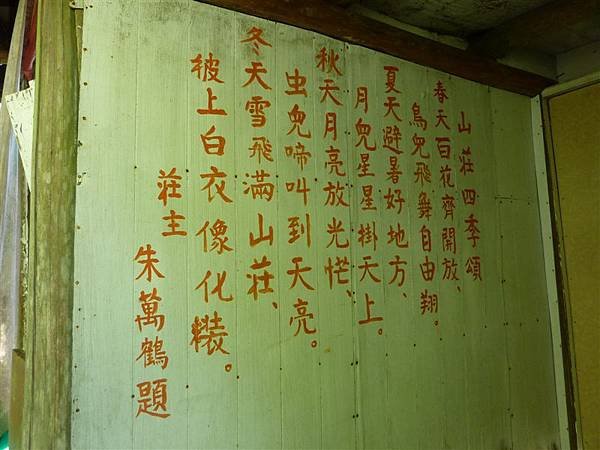 山莊四季頌
春天百花齊開放、
鳥兒飛舞自由翔。
夏天避暑好地方、
月兒星星掛天上。
秋天月亮放光芒、
虫兒啼叫到天亮。
冬天雪飛滿山莊、
披上白衣像化糚。
莊主
朱萬鶴題